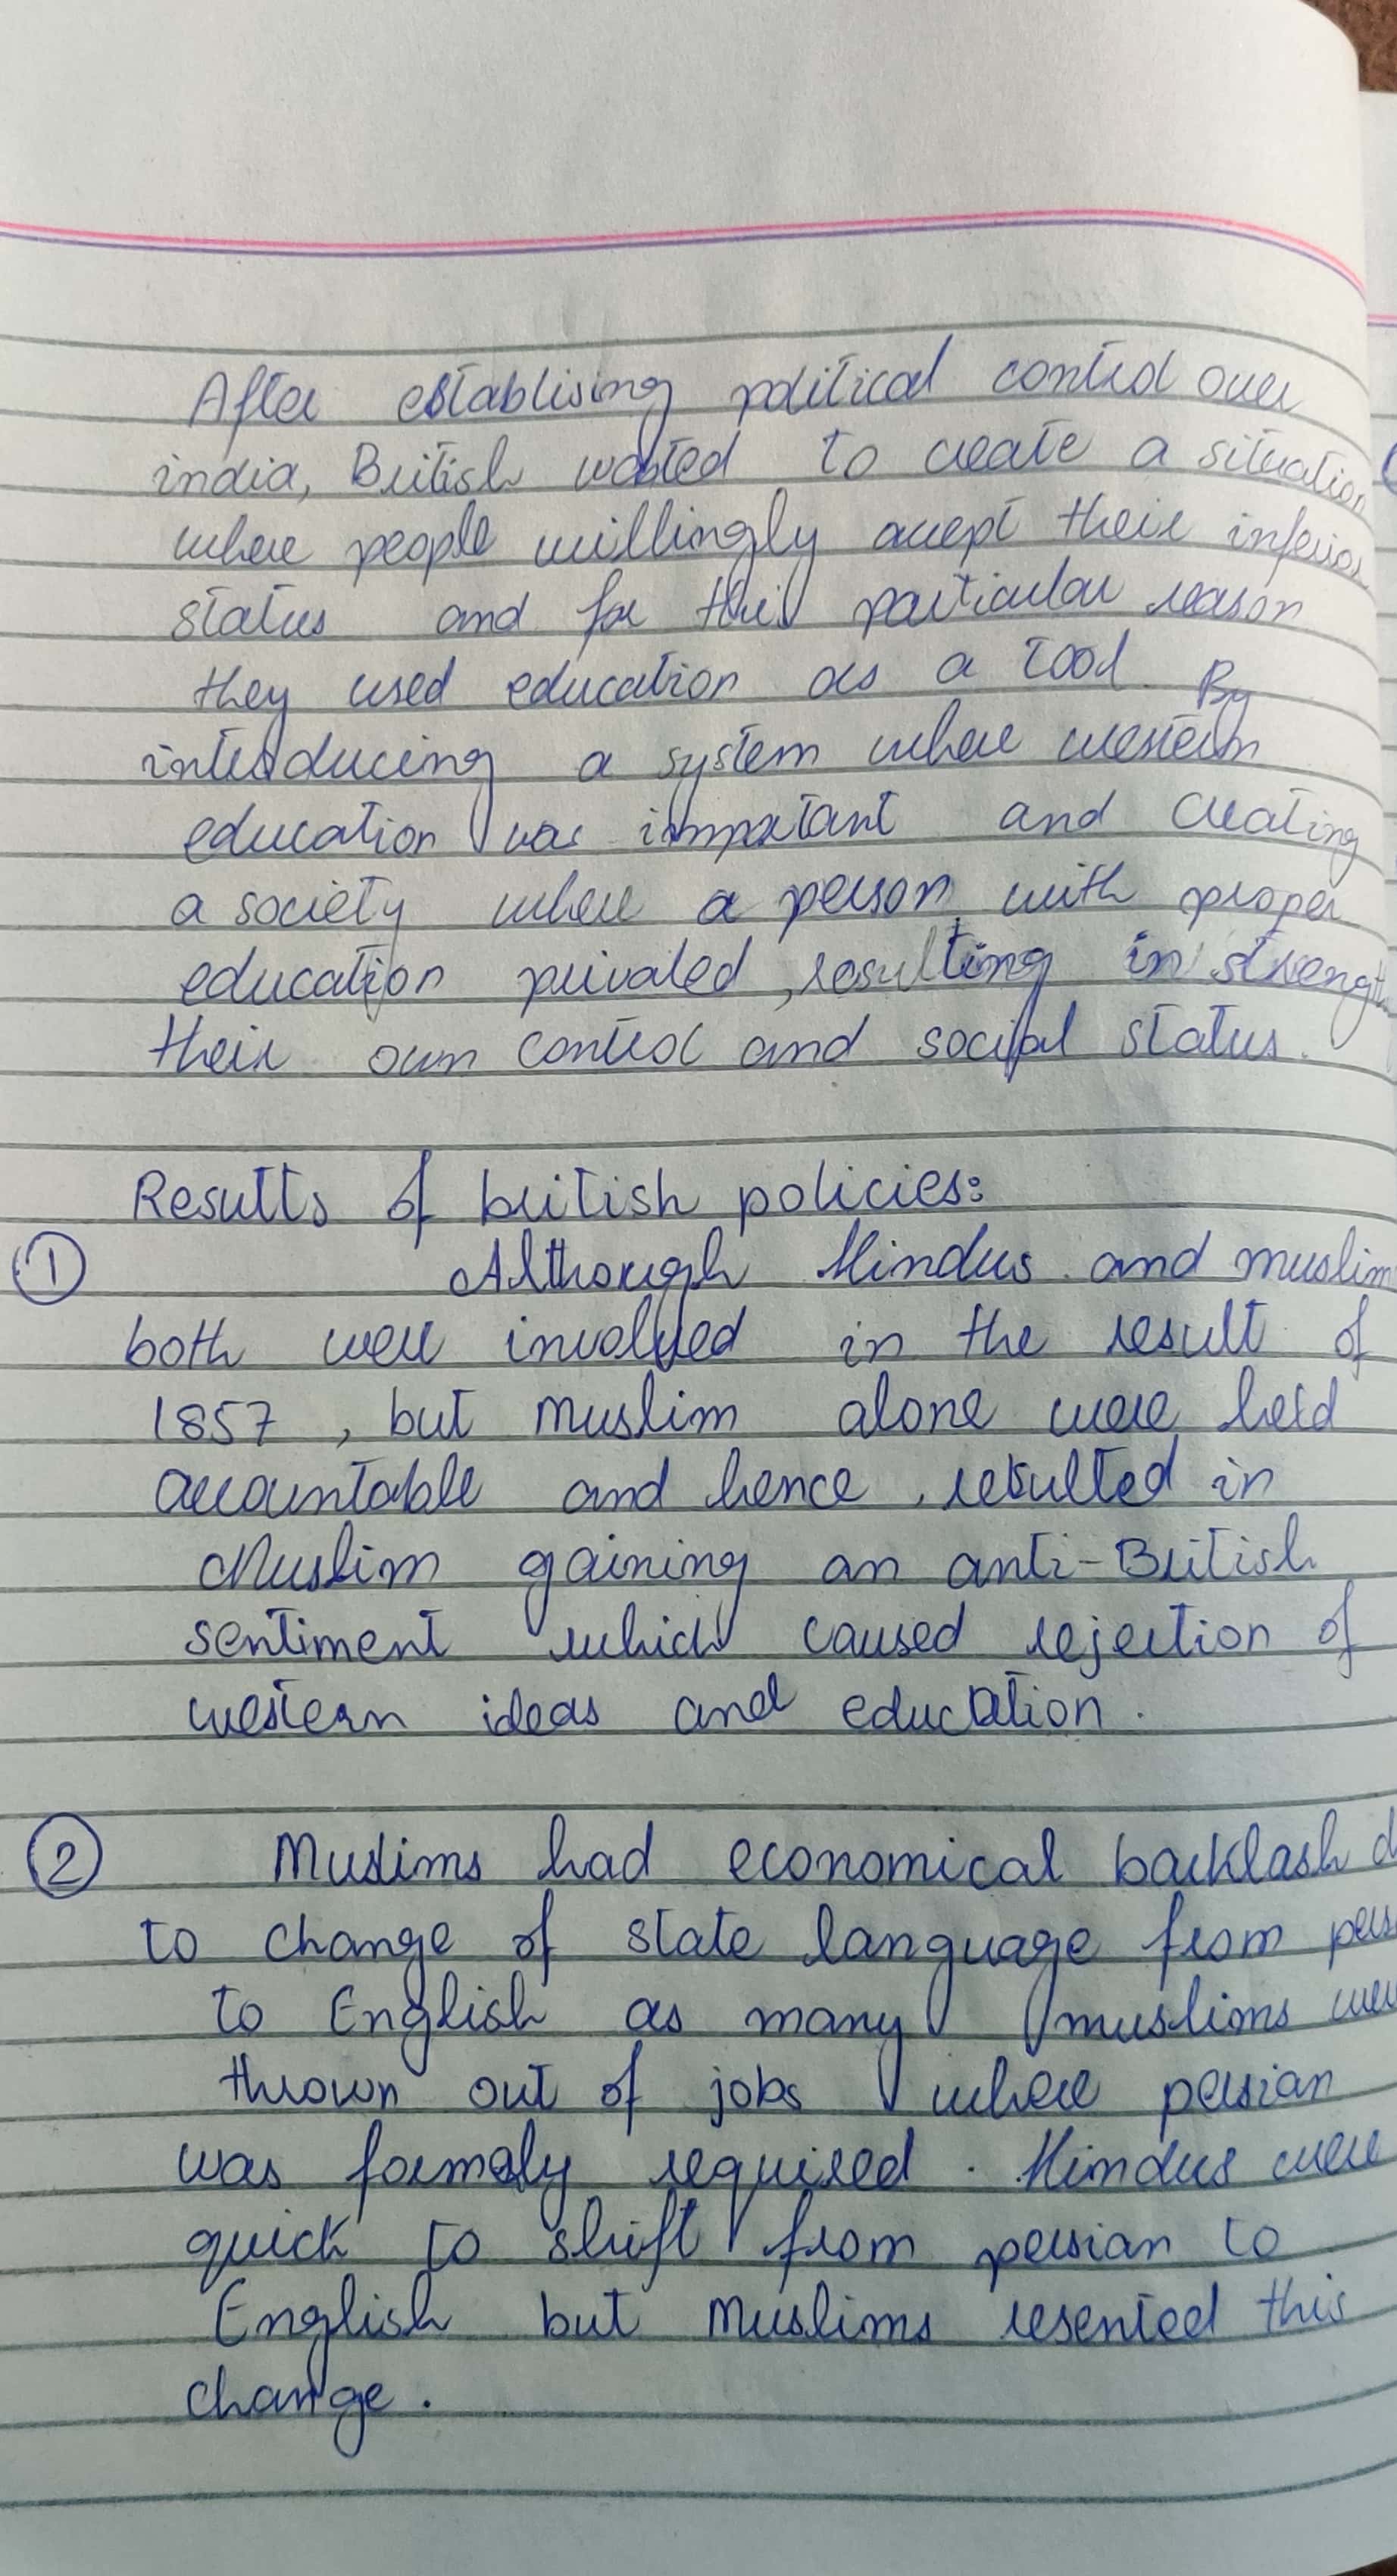 After establising political control over
india, British wanted to create a situation
where people willingly accept their inferior
status and for this particular reason
they used education as a tool. By
introducing a system where western
education was important and creating
a society where a person with proper
education privaled, resulting in strength
their own control and social status.
Results of british policies:
① Although Hindus and muslim
both were involved in the result of
1857, but muslim alone were held
accountable and hence, resulted in
Muslim gaining an anti-British
sentiment which caused rejection of
western ideas and education.
② Muslims had economical backlash d
to change of state language from pers
to English as many muslims were
thrown out of jobs where persian
was formaly required. Hindus were
quick to shift from persian to
English but Muslims resented this
change.